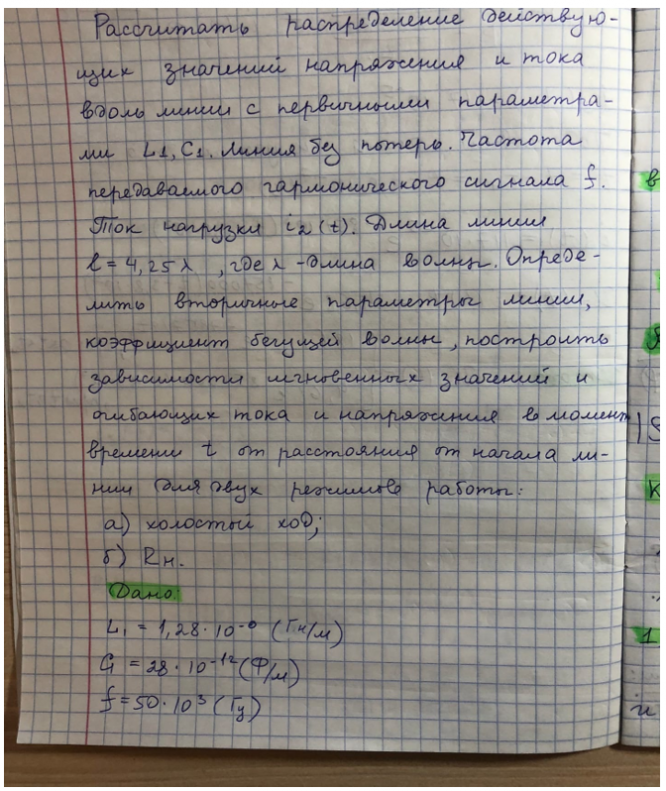 Рассчитать распределение действую-
щих значений напряжения и тока
вдоль линии с первичными параметра-
ми L1, C1. Линия без потерь. Частота
передаваемого гармонического сигнала f.
Ток нагрузки i2(t). Длина линии
l = 4,25λ, где λ - длина волны. Опреде-
лить вторичные параметры линии,
коэффициент бегущей волны, построить
зависимости мгновенных значений и
огибающих тока и напряжения в момент
времени t от расстояния от начала ли-
нии для двух режимов работы:
а) холостый ход;
б) Rн.
Дано:
L1 = 1,28·10⁻⁶ (Гн/м)
C1 = 28·10⁻¹² (Ф/м)
f = 50·10³ (Гц)
в
К
1
и